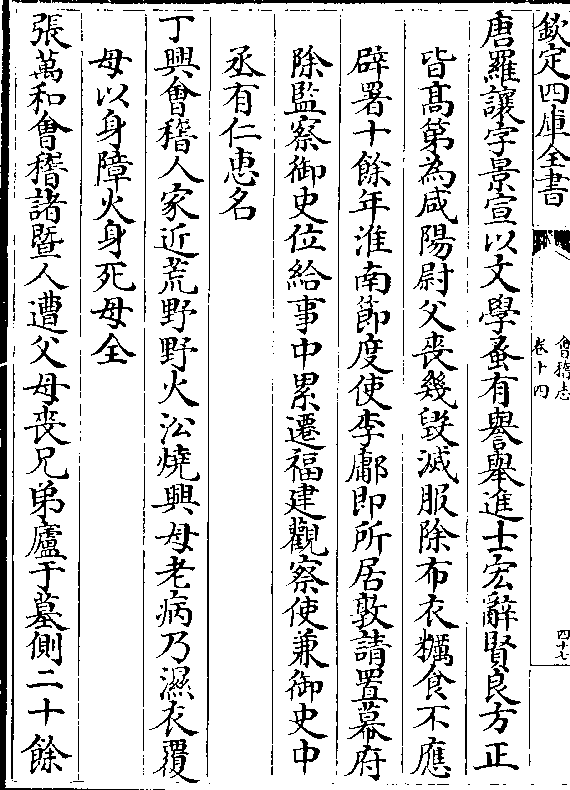 欽定四庫全書
會稽志
卷十四
四十七
唐羅讓字景宣以文學蚤有譽舉進士宏辭賢良方正
皆髙第為咸陽尉父喪幾毀滅服除布衣糲食不應
辟署十餘年淮南節度使李鄘即所居敦請置幕府
除監察御史位給事中累遷福建觀察使兼御史中
丞有仁恵名
丁興會稽人家近荒野野火㳂燒興母老病乃濕衣覆
母以身障火身死母全
張萬和會稽諸暨人遭父母喪兄弟廬于墓側二十餘